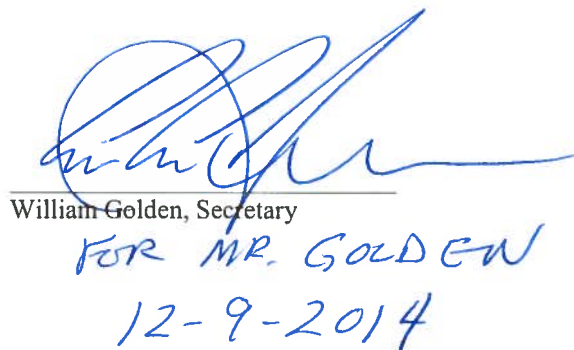 William Golden, Secretary
FOR MR. GOLDEN
12-9-2014